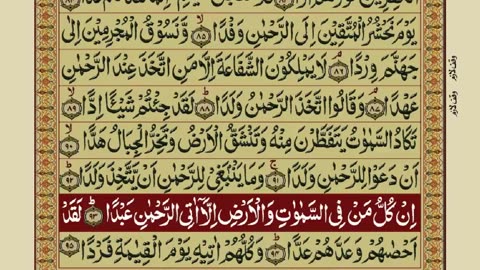 يَوْمَ نَحْشُرُ الْمُتَّقِيْنَ اِلَى الرَّحْمٰنِ وَفْدًا ۙ﴿۸۵﴾ وَّنَسُوْقُ الْمُجْرِمِيْنَ اِلٰى
جَهَنَّمَ وِرْدًا ۘ﴿۸۶﴾ لَا يَمْلِكُوْنَ الشَّفَاعَةَ اِلَّا مَنِ اتَّخَذَ عِنْدَ الرَّحْمٰنِ
عَهْدًا ۘ﴿۸۷﴾ وَقَالُوا اتَّخَذَ الرَّحْمٰنُ وَلَدًا ؕ﴿۸۸﴾ لَقَدْ جِئْتُمْ شَيْـًٔا اِدًّا ۙ﴿۸۹﴾
تَكَادُ السَّمٰوٰتُ يَتَفَطَّرْنَ مِنْهُ وَتَنْشَقُّ الْاَرْضُ وَتَخِرُّ الْجِبَالُ هَدًّا ۙ﴿۹۰﴾
اَنْ دَعَوْا لِلرَّحْمٰنِ وَلَدًا ۚ﴿۹۱﴾ وَمَا يَنْۢبَغِيْ لِلرَّحْمٰنِ اَنْ يَّتَّخِذَ وَلَدًا ؕ﴿۹۲﴾
اِنْ كُلُّ مَنْ فِى السَّمٰوٰتِ وَالْاَرْضِ اِلَّاۤ اٰتِى الرَّحْمٰنِ عَبْدًا ؕ﴿۹۳﴾ لَقَدْ
اَحْصٰىهُمْ وَعَدَّهُمْ عَدًّا ؕ﴿۹۴﴾ وَكُلُّهُمْ اٰتِيْهِ يَوْمَ الْقِيٰمَةِ فَرْدًا ﴿۹۵﴾
وقف لازم
وقف لازم